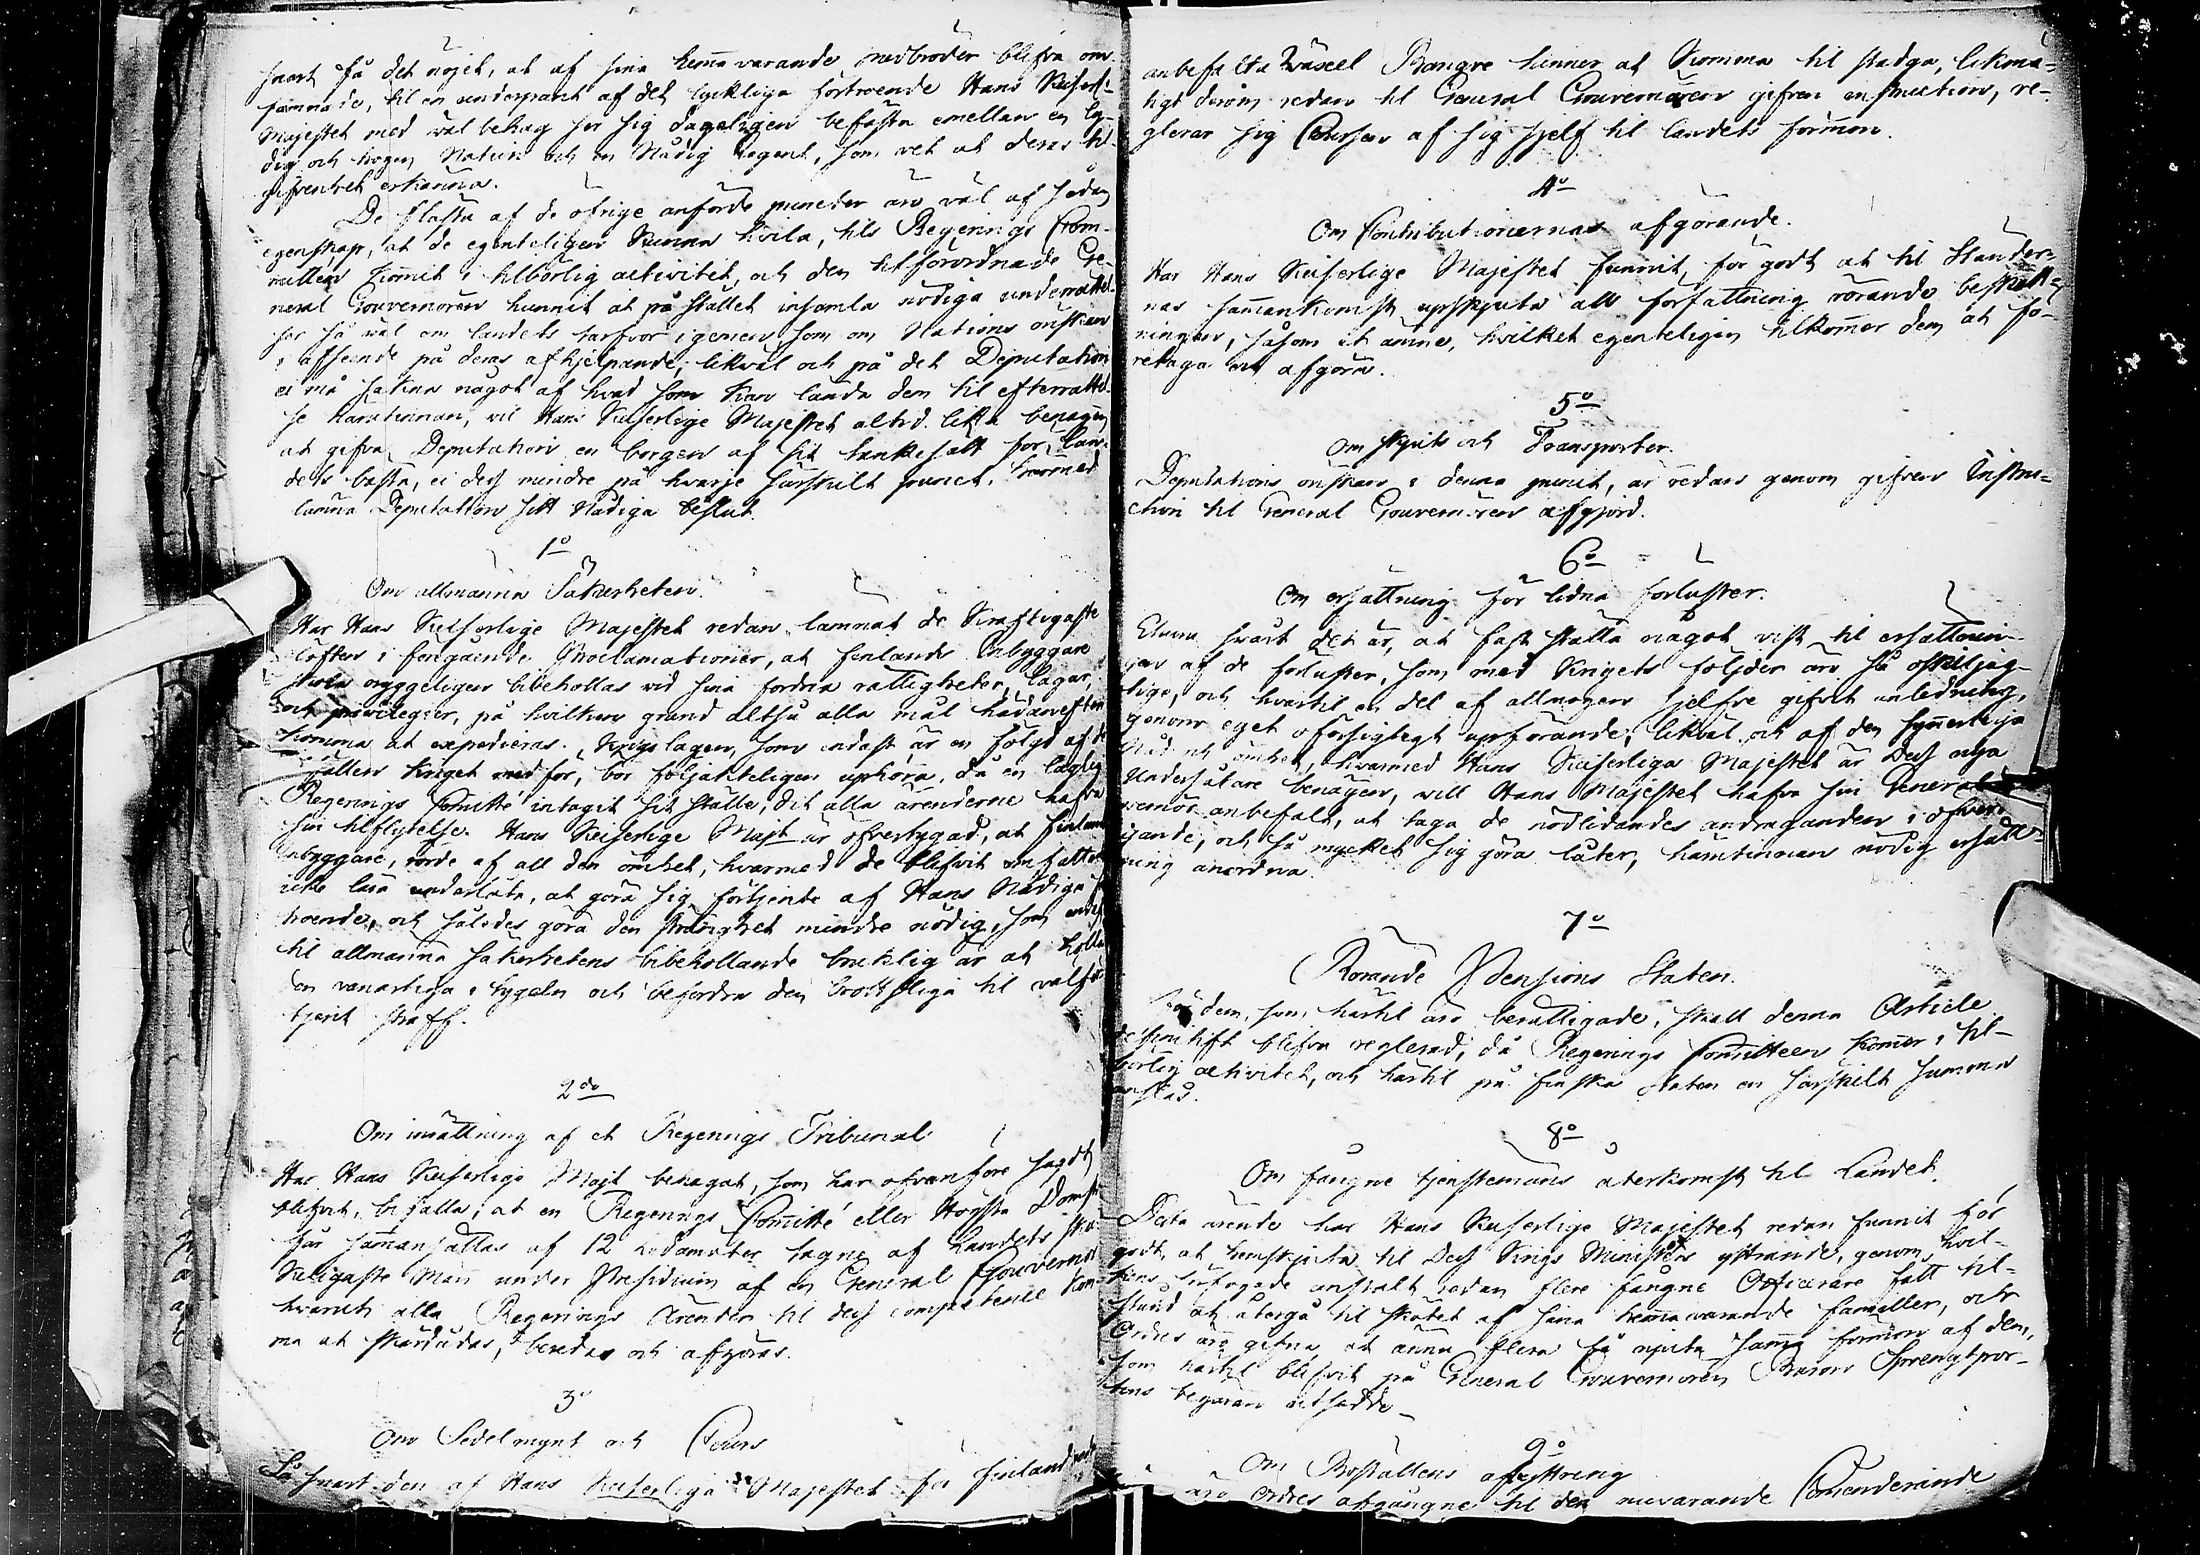 snart få det nöjet, at af sina hemmavarande medbröder blifva om-
famnade, til en underpant af det lyckliga förtroende Hans Keiserl.
Majestet med välbehag ser sig dageligen befästa emellan en ly-
dig och trogen Nation och en Nådig Regent, som vet at deras til-
gifvenhet erkänna.
De flästa af de öfrige anförde puncter äro väl af sådan
egenskap, at de egenteligen kunna hvila, tils Regerings Com-
mitten kommit i tilbörlig activitet, och den tilförordnade Ge-
neral Gouvernören hunnit at på stället insamla nödiga underrättel-
ser så väl om landets tarfvor i gemen, som om Nations önskan
i afseende på deras afhjelpande; likväl och på det Deputation
ei må sakna något af hvad som kan lända dem til efterrättel-
se härutinnan, vil Hans Keiserlige Majestet altid lika benägen
at gifva Deputation en borgen af sit tänkesätt för Lan-
dets bästa, ei dess mindre på hvarje särskilt punct, härmed
lämna Deputation sitt Nådiga beslut.
1o
Om allmänna Säkerheten.
Har Hans Keiserlige Majestet redan lämnat de kraftigaste
löften i föregående Proclamationer, at Finlands Inbyggare
skola oryggeligen bibehållas vid sina fordna rättigheter, lagar,
och privilegier, på hvilken grund altså alla mål hädanefter
komma at expedieras. Krigslagen, som endast är en följd af de
fallen kriget medför, bör följakteligen uphöra, då en laglig
Regerings Comitté intagit sit ställe, dit alla ärenderne hafva
sin tilflytelse. Hans Keiserlige Majt är öfvertygad, at Finlands
inbyggare, rörde af all den ömhet, hvarmed de blifvit omfattade
icke lära underlåta, at göra sig förtjente af Hans Nådiga för-
troende, och således göra den stränghet mindre nödig, som endast
til allmänna säkerhetens bibehållande bruklig är at hålla
den vanartiga i tygeln och befordra den brottsliga til välför-
tjent straff.
2do
Om inrättning af et Regerings Tribunal
Har Hans Keiserlige Majt behagat, som här ofvanföre sagdt
blifvit, befalla, at en Regerings Comitté eller Högsta Domst.
får sammansättas af 12 Ledamöter tagne af Landets ski-
keligaste Män under Præsidium af en General Gouverneur
hvarest alla Regerings Ärender til dess competence kom-
ma at skärdådas, beredas och afgöras.
3o
Om Sedelmynt och Cours
Så snart den af Hans Keiserliga Majestet för Finland
anbefalta Wäxel Banque hinner at komma til stadga, likmä-
tigt derom redan til General Gouvernören gifven instruction, re-
glerar sig Coursen af sig sjelf til landets förmon.
4o
Om Contributionernas afgörande.
Har Hans Keiserlige Majestet funnit för godt at til Ständer-
nas sammankomst upskjuta all författning rörande beskatt-
ningen, såsom et ämne, hvilket egenteligen tilkommer dem at fö-
retaga och afgöra.
5o
Om skjuts och Transporter.
Deputations önskan i denna punct, är redan genom gifven Instru-
ction til General Gouvernören afgjord.
6o
Om ersättning för lidna förluster.
Ehuru svårt det är, at fast ställa något vist til ersättnin-
gen af de förluster, som med krigets följder äro så oskiljag-
tige, och hvartil en del af allmogen sjelfve gifvit anledning,
genom eget oförsigtigt upförande; likväl och af den synnerliga
Nåd och ömhet, hvarmed Hans Keiserliga Majestet är Dess nya
Undersåtare benägen, vill Hans Majestet hafva sin General
vernör anbefalt, at taga de nödlidandes andraganden i öfver-
vägande, och så mycket sig göra låter, härutinnan nödig ersätt-
ning anordna.
7o
Rörande Pensions Staten.
För dem, som härtil äro berättigade, skall denna Article
definitift blifva reglerad, då Regerings Comitteen kommer i til-
börlig activitet, och härtil på finska Staten en särskilt summa
anslås.
8o
Om fångne tjenstemäns återkomst til Landet.
Detta ärende har Hans Keiserlige Majestet redan funnit för
godt, at hemskjuta til Dess Krigs Ministers yttrande, genom hvil-
kens anstalt redan flere fångne Officerare fått til-
stånd at återgå til skötet af sina hemmavarande familler, och
Ordres äro gifna, at ännu flera få njuta samma förmon af dem,
som härtil blifvit på General Gouvernören Baron Sprengtpor-
tens begäran utsedde.
9o
Om Boställens afsyttring
äro Ordres afgångne til den nuvarande Commenderande